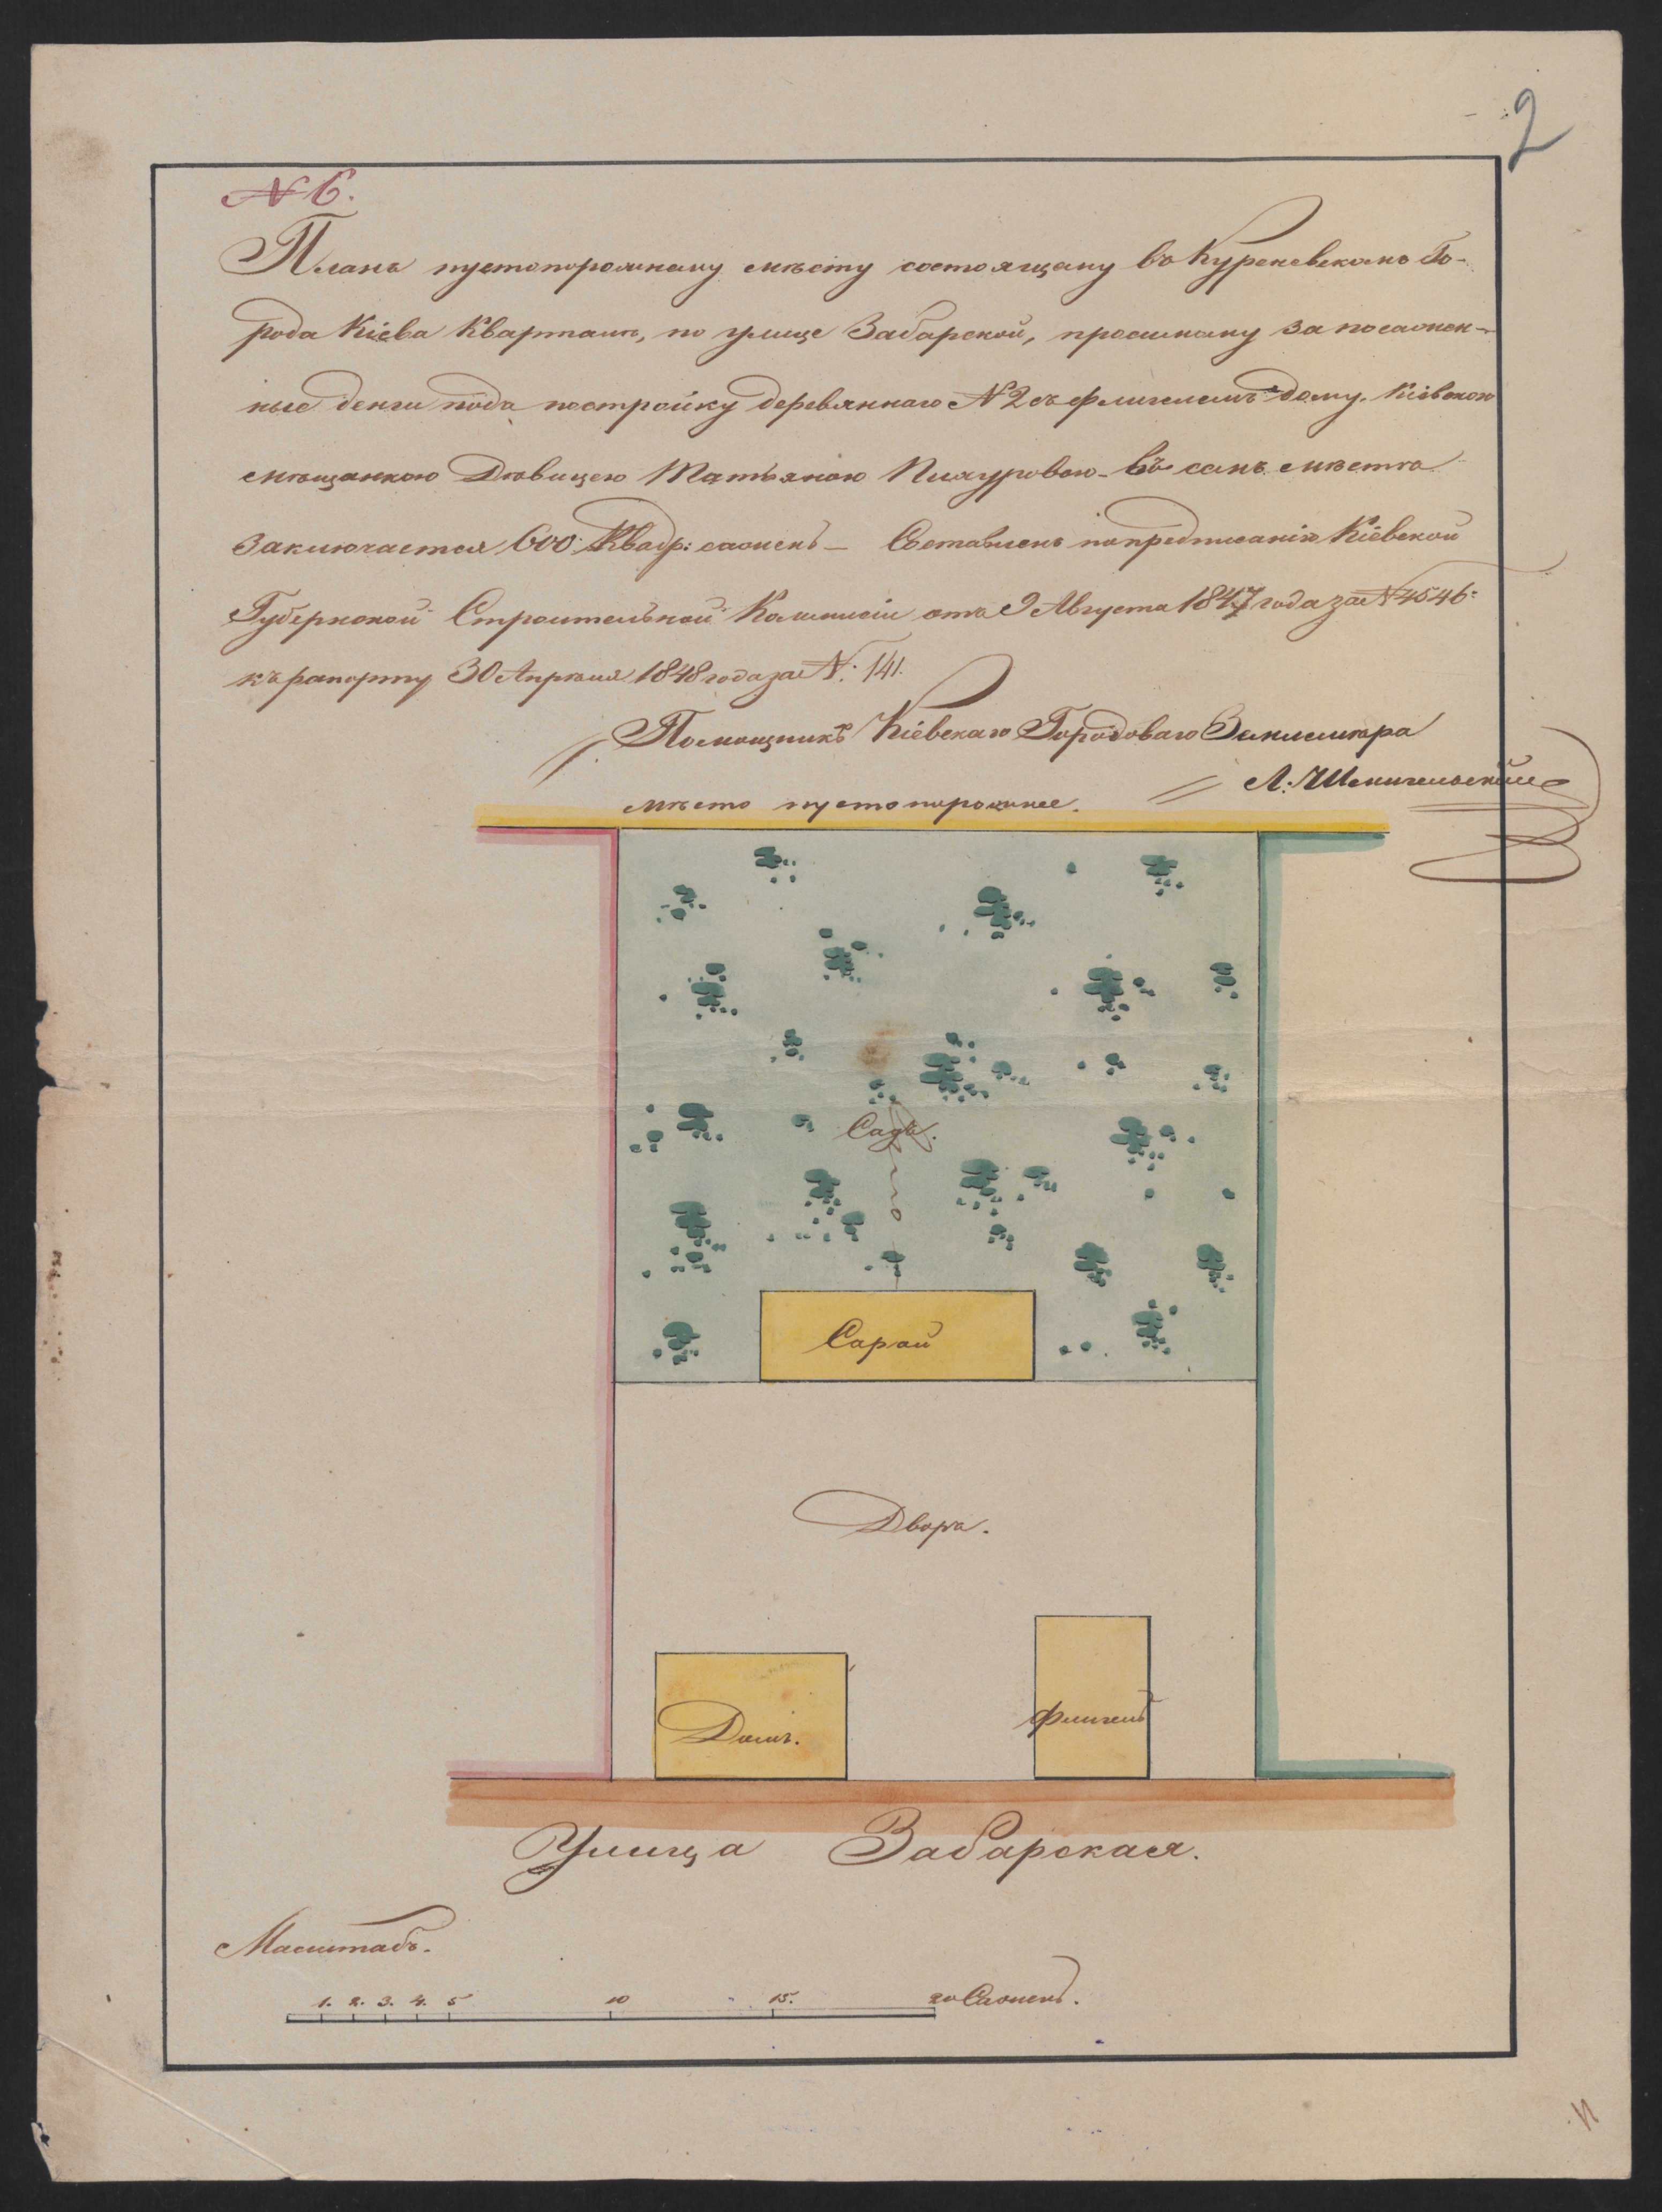 2
№ 6.
Планъ пустопорожнему мѣсту состоящему въ Куреневскомъ Го-
рода Кіева Кварталѣ, по улице Забарской, просимому за посажен-
ные денги подъ постройку деревяннаго № 2 съ флигелемъ дому. Кіевскою
мѣщанкою Дѣвицею Татьяною
въ семъ мѣстѣ
заключается 600: Квадр: сажень — Составленъ по предписанію Кіевской
Губернской Строительной Коммисіи отъ 9 Августа 1847 года за № 4546:
къ рапорту 30 Апрѣля 1848 года за №: 141.
Помощникъ Кіевскаго Городоваго Землемѣра
мѣсто пустопорожнее.
Садъ.
Сарай
Дворъ.
Домъ.
Флигель
Улица Забарская.
Масштабъ.
1. 2. 3. 4. 5 10 15. 20 Сажень.